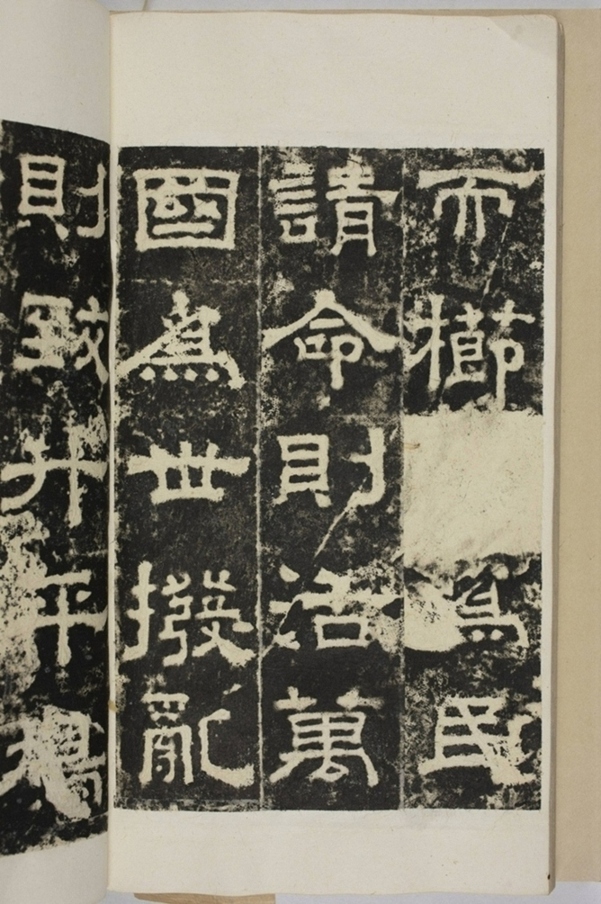 而櫛為民
請命則活萬
國為世撥亂
則致升平